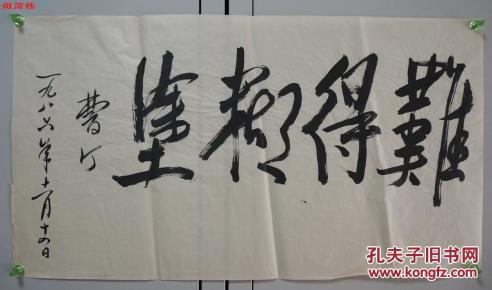 難得糊塗
曹行
一九八六年十一月十四日
孔夫子旧书网
kongfz.com